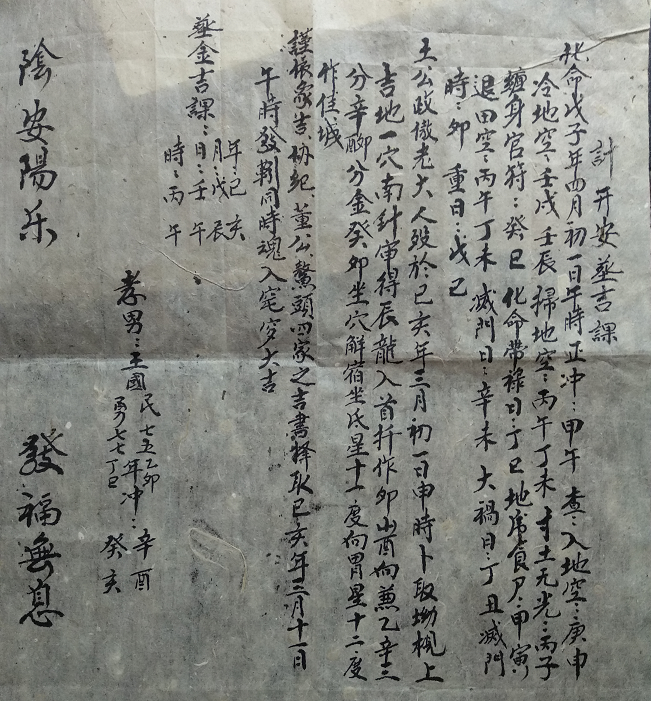 計開安葬吉課
化命戊子年四月初一日午時正冲：甲午 查：入地空：庚申
冷地空：壬戌 壬辰 掃地空：丙午丁未 寸土无光：丙子
纏身官符：癸巳 化命帶祿日：丁巳 地
退田空：丙午丁未 滅門日：辛未 大禍日：丁丑 滅門
時：卯 重日：戊己
王公政 老大人歿於己亥年三月初一日申時卜取 上
吉地一穴南針審得辰龍入首扦作卯山酉向兼乙辛三
分辛卯分金癸卯坐穴 宿坐氐星十一度向胃星十二度
作佳城
謹依象吉協紀董公鰲頭四家之吉書擇取己亥年三月十一日
午時發引同時魂入窀穸大吉
葬金吉課：年：己亥
月：戊辰
日：壬午
時：丙午
孝男：王國民七五乙卯
勇七七丁巳
年冲：辛酉
癸亥
陰安陽乐 發福無息